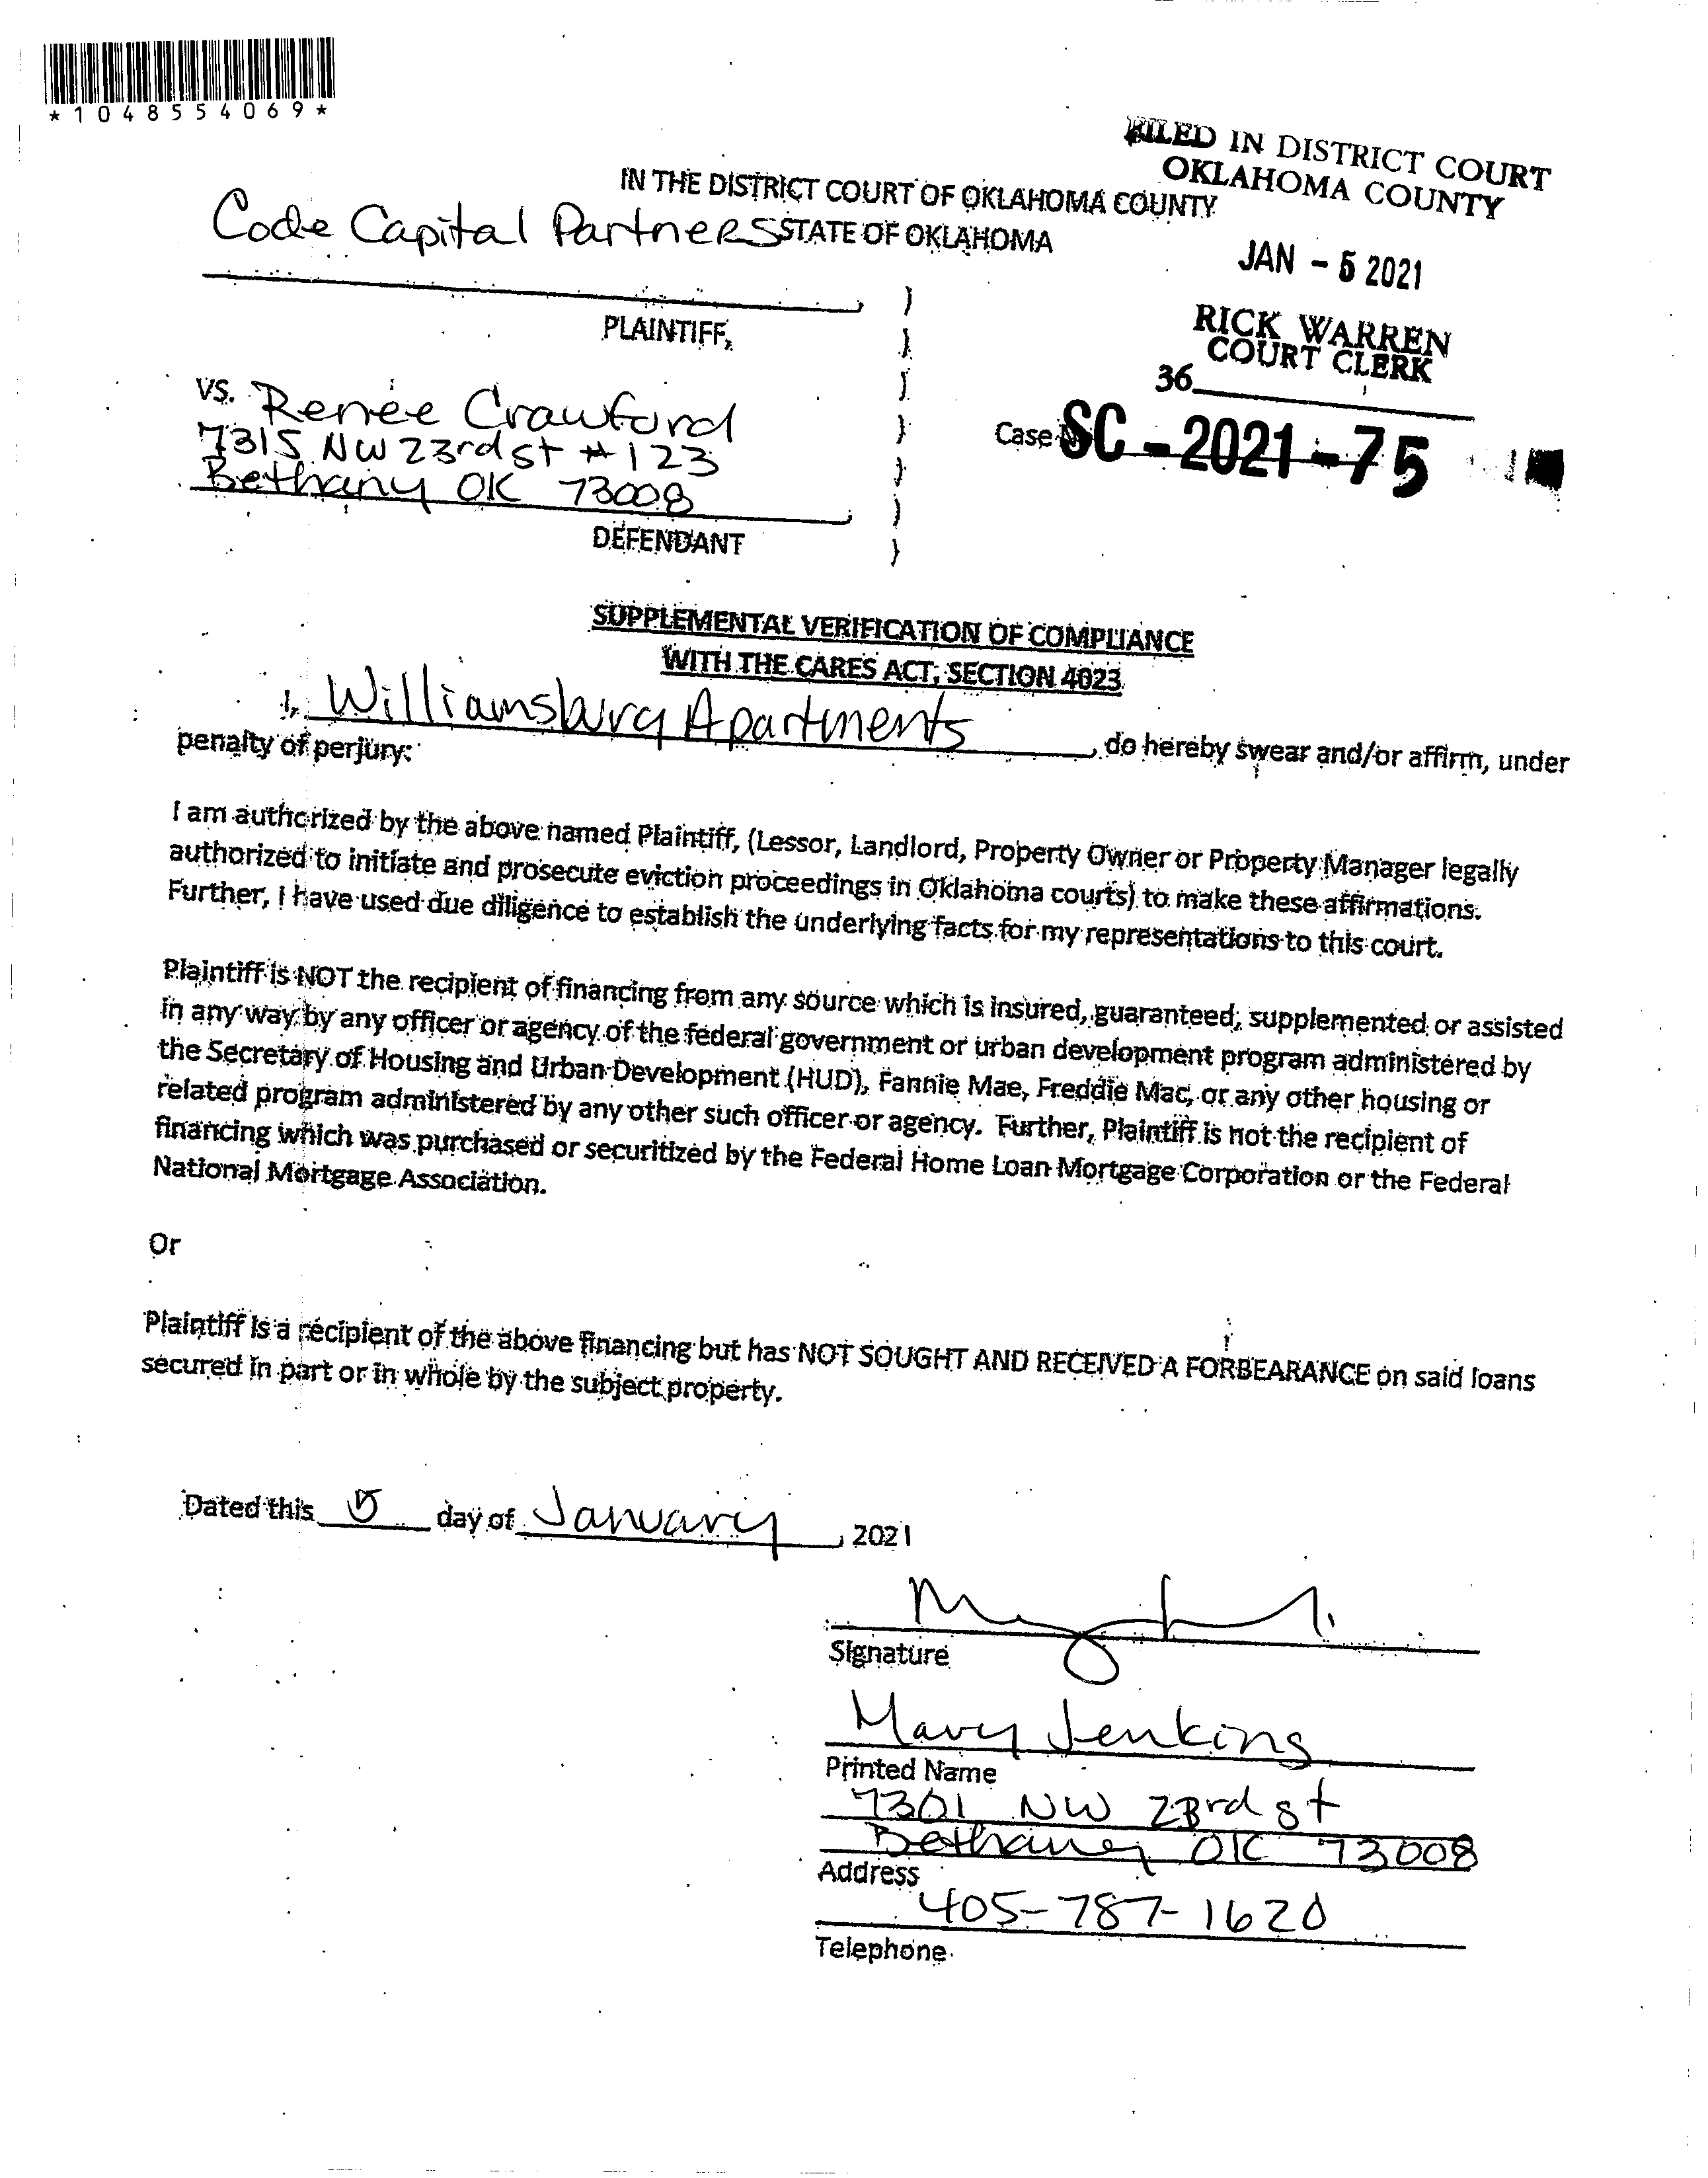 *1048554069*
FILED IN DISTRICT COURT
OKLAHOMA COUNTY
JAN - 5 2021
RICK WARREN
COURT CLERK
36
IN THE DISTRICT COURT OF OKLAHOMA COUNTY
STATE OF OKLAHOMA
Code Capital Partners
PLAINTIFF,
VS. Renee Crawford
7315 NW 23rd st # 123
Bethany OK 73008
DEFENDANT
Case SC-2021-75
SUPPLEMENTAL VERIFICATION OF COMPLIANCE
WITH THE CARES ACT, SECTION 4023
I, Williamsburg Apartments, do hereby swear and/or affirm, under
penalty of perjury:
I am authorized by the above named Plaintiff, (Lessor, Landlord, Property Owner or Property Manager legally
authorized to initiate and prosecute eviction proceedings in Oklahoma courts) to make these affirmations.
Further, I have used due diligence to establish the underlying facts for my representations to this court.
Plaintiff is NOT the recipient of financing from any source which is insured, guaranteed, supplemented or assisted
in any way by any officer or agency of the federal government or urban development program administered by
the Secretary of Housing and Urban Development (HUD), Fannie Mae, Freddie Mac, or any other housing or
related program administered by any other such officer or agency. Further, Plaintiff is not the recipient of
financing which was purchased or securitized by the Federal Home Loan Mortgage Corporation or the Federal
National Mortgage Association.
Or
Plaintiff is a recipient of the above financing but has NOT SOUGHT AND RECEIVED A FORBEARANCE on said loans
secured in part or in whole by the subject property.
Dated this 5 day of January, 2021
Signature
Mary Jenkins
Printed Name
7301 NW 23rd st
Bethany OK 73008
Address
405-787-1620
Telephone